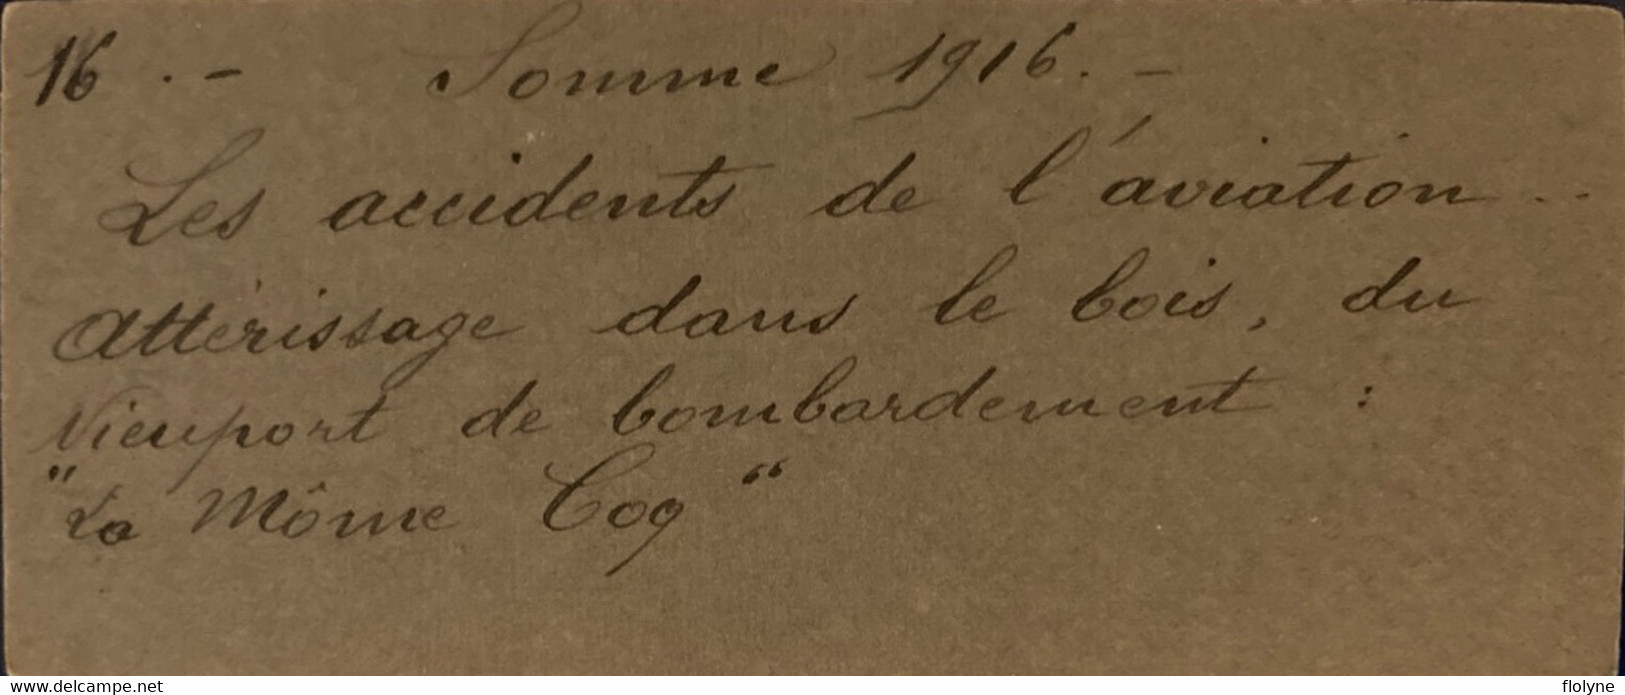 16 . - Somme 1916. -
Les accidents de l'aviation ..
Attérissage dans le bois, du
Nieuport de bombardement :
"La Môme Coq"
www.delcampe.net
flolyne